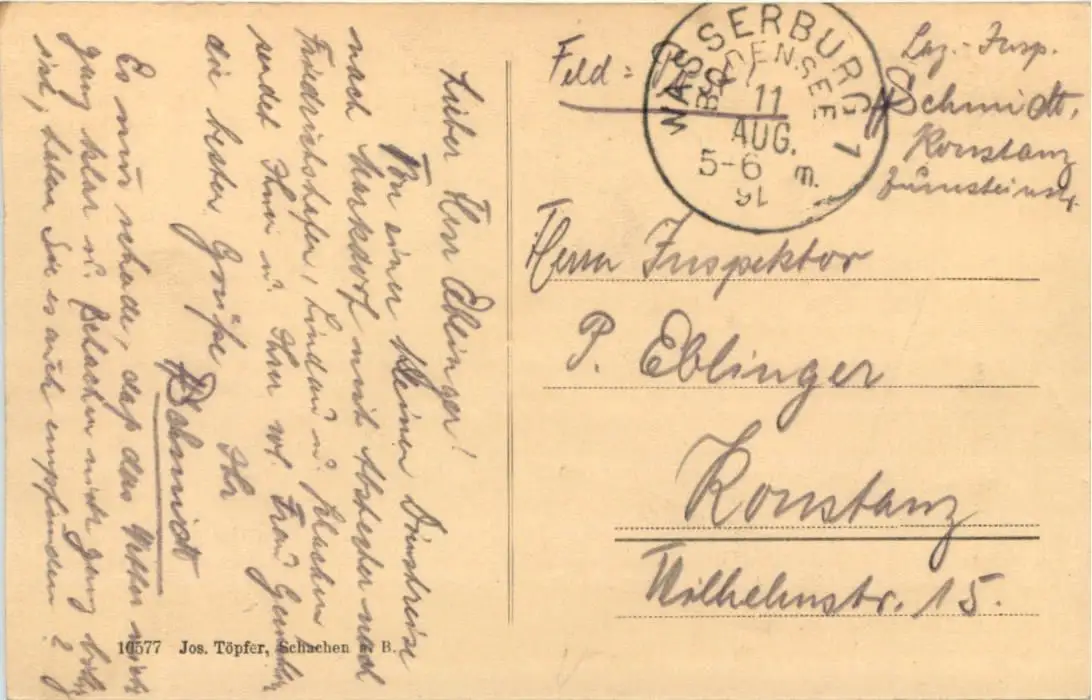 Lieber Herr Eblinger!
Von einer kleinen Dienstreise
nach Markdorf mit Abstecher nach
Friedrichshafen, Lindau u. Schachen
sendet Ihnen u. Ihrer w. Frau Gemahlin
die besten Grüße
Ihr
Schmidt
Es nur schade, daß das Wetter nicht
ganz klar u. nicht ganz
ist, haben Sie es auch empfunden?
10577 Jos. Töpfer, Schachen B.
Feld
WASSERBURG
BODENSEE
11
AUG.
5-6 m.
1
Laz.-Insp.
Schmidt,
Konstanz
Herrn Inspektor
P. Eblinger
Konstanz
Wilhelmstr. 15.